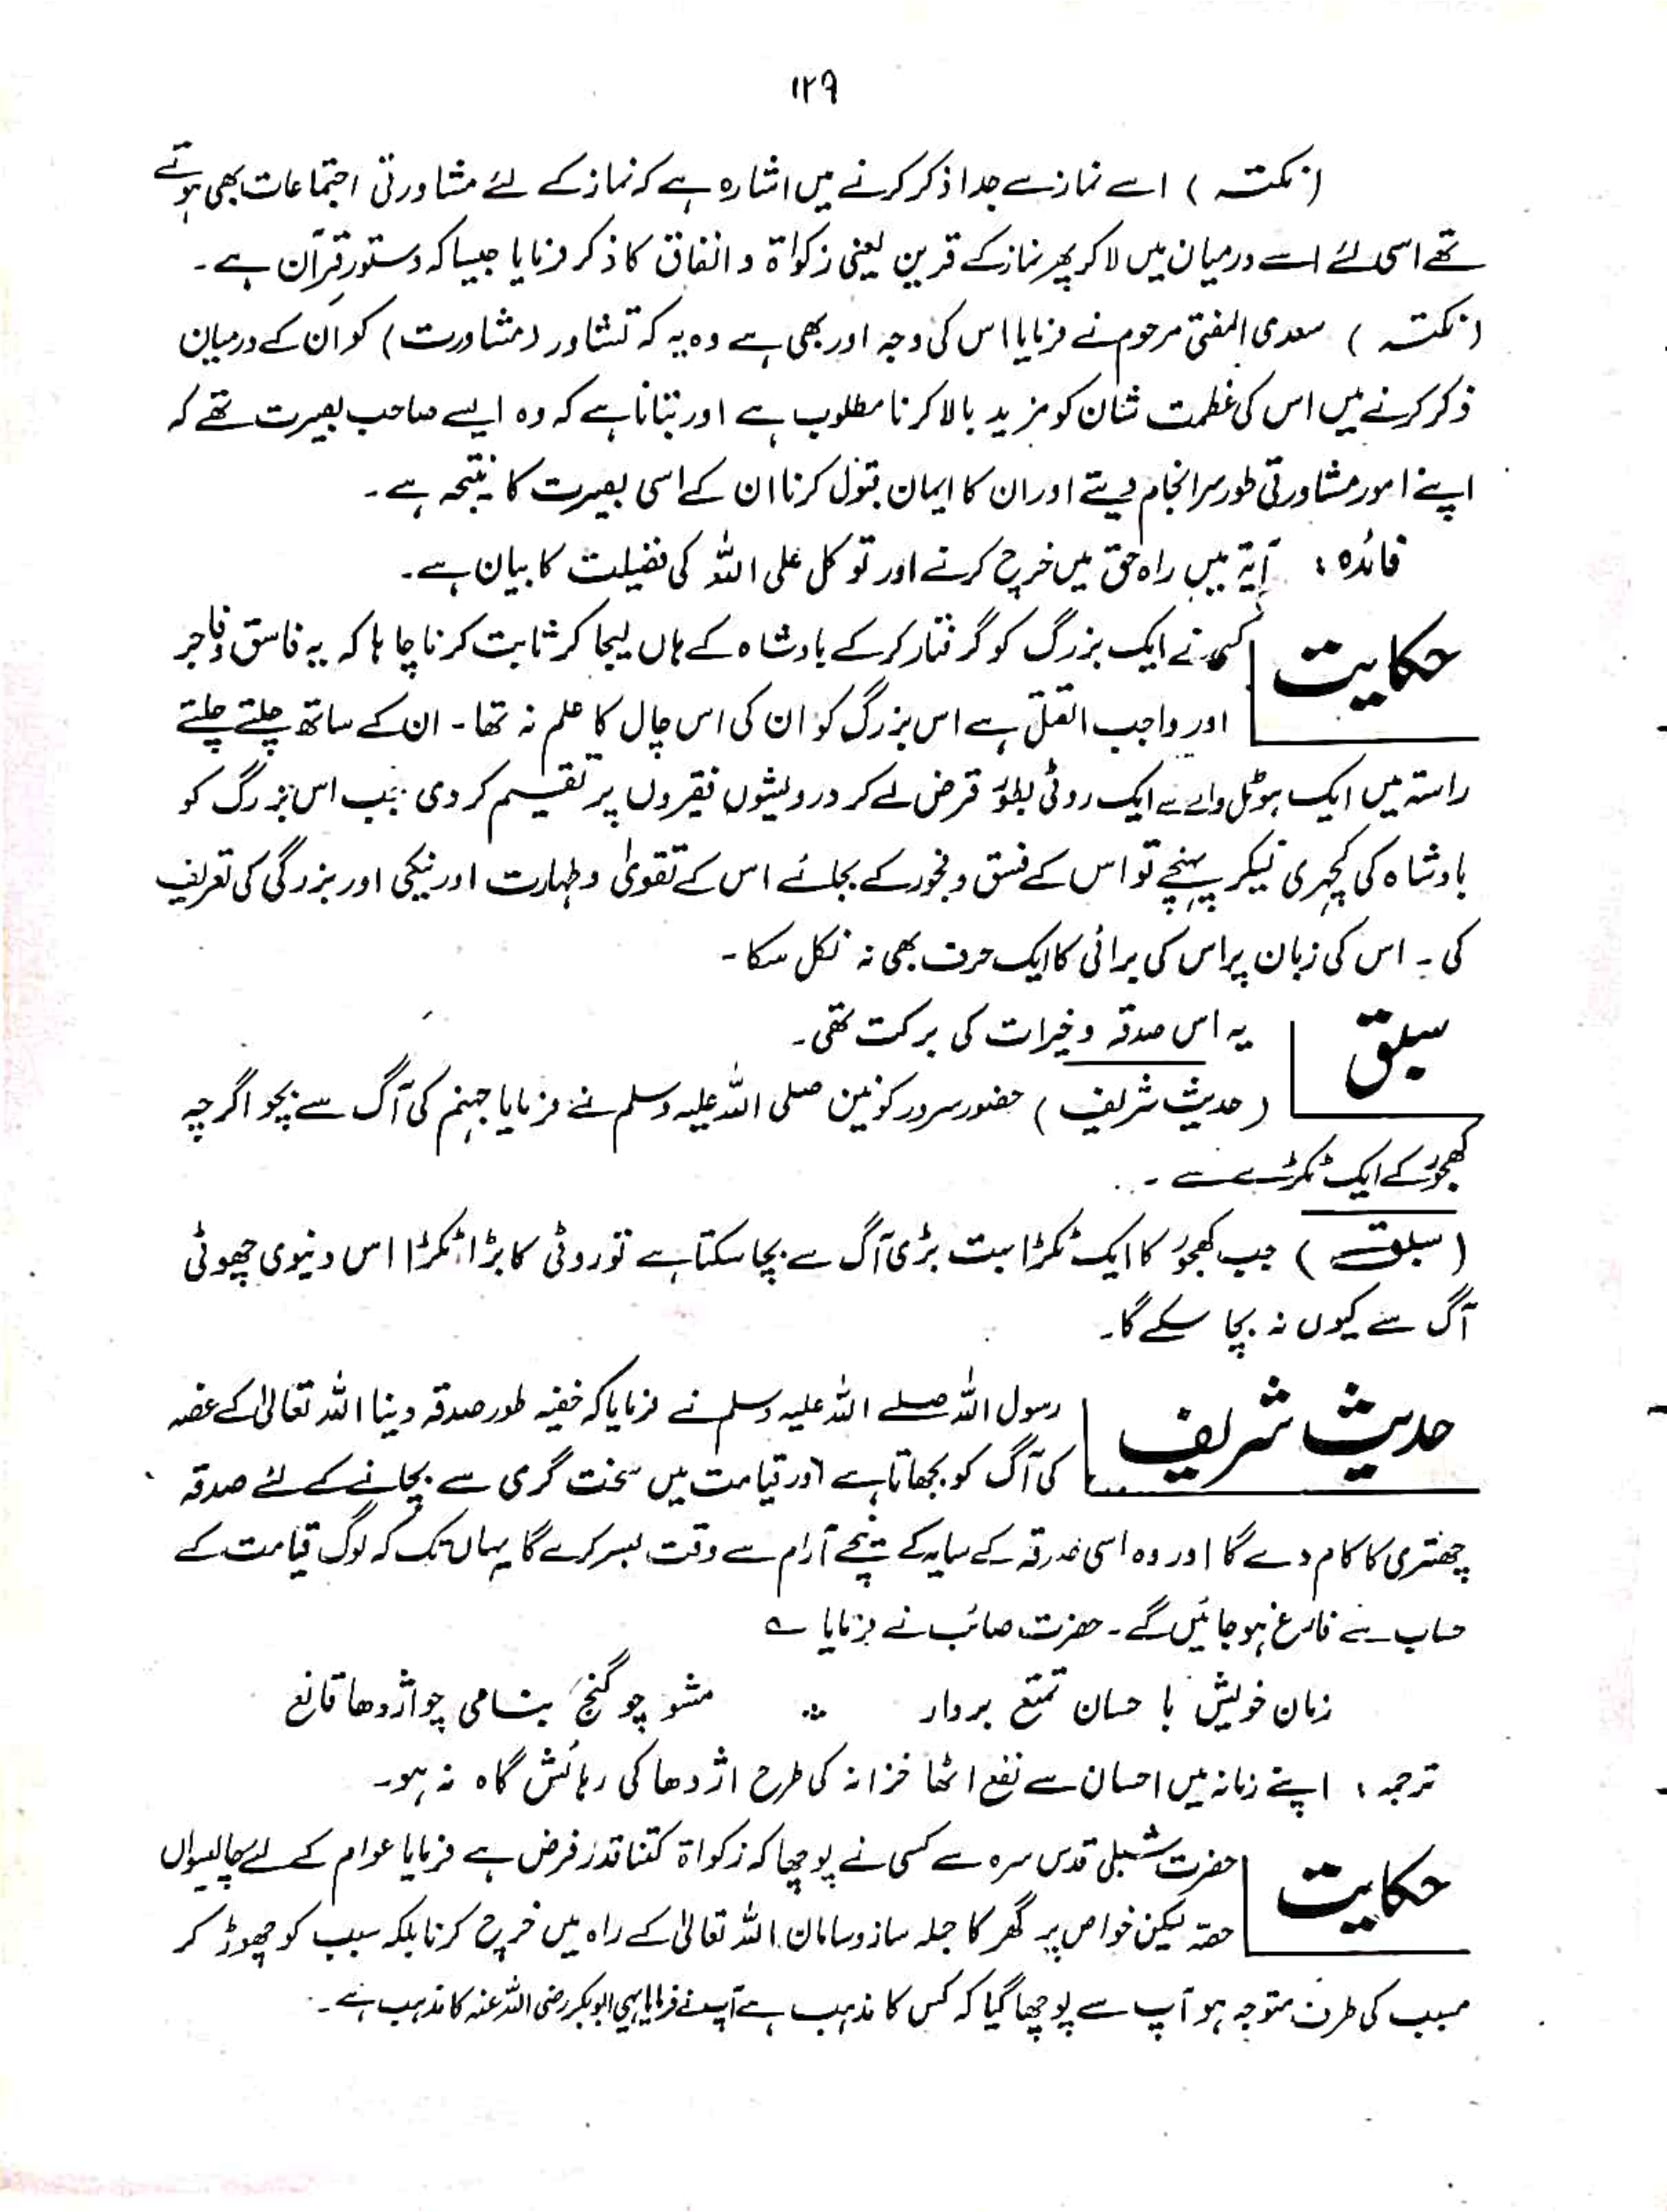 ۱۲۹
(نکتہ) اسے نماز سے جدا ذکر کرنے میں اشارہ ہے کہ نماز کے لئے مشاورتی اجتماعات بھی ہوتے
تھے اسی لئے اسے درمیان میں لا کر پھر نماز کے قرین یعنی زکواۃ و انفاق کا ذکر فرمایا جیسا کہ دستور قرآن ہے۔
(نکتہ) سعدی المفتی مرحوم نے فرمایا اس کی وجہ اور بھی ہے وہ یہ کہ تشاور (مشاورت) کو ان کے درمیان
ذکر کرنے میں اس کی عظمت شان کو مزید بالا کرنا مطلوب ہے اور بتانا ہے کہ وہ ایسے صاحب بصیرت تھے کہ
اپنے امور مشاورتی طور سرانجام دیتے اور ان کا ایمان قبول کرنا ان کے اسی بصیرت کا نتیجہ ہے۔
فائدہ: آیۃ میں راہ حق میں خرچ کرنے اور توکل علی اللہ کی فضیلت کا بیان ہے۔
حکایت کسی نے ایک بزرگ کو گرفتار کر کے بادشاہ کے ہاں لیجا کر ثابت کرنا چاہا کہ یہ فاسق و فاجر
اور واجب القتل ہے اس بزرگ کو ان کی اس چال کا علم نہ تھا۔ ان کے ساتھ چلتے چلتے
راستہ میں ایک ہوٹل والے سے ایک روٹی بطور قرض لے کر درویشوں فقیروں پر تقسیم کر دی جب اس بزرگ کو
بادشاہ کی کچہری لیکر پہنچے تو اس کے فسق و فجور کے بجائے اس کے تقویٰ و طہارت اور نیکی اور بزرگی کی تعریف
کی۔ اس کی زبان پر اس کی برائی کا ایک حرف بھی نہ نکل سکا۔
سبق یہ اس صدقہ و خیرات کی برکت تھی۔
(حدیث شریف) حضور سرور کونین صلی اللہ علیہ وسلم نے فرمایا جہنم کی آگ سے بچو اگرچہ
کھجور کے ایک ٹکڑے سے۔
(سبق) جب کھجور کا ایک ٹکڑا بہت بڑی آگ سے بچا سکتا ہے تو روٹی کا بڑا ٹکڑا اس دنیوی چھوٹی
آگ سے کیوں نہ بچا سکے گا۔
حدیث شریف رسول اللہ صلے اللہ علیہ وسلم نے فرمایا کہ خفیہ طور صدقہ دینا اللہ تعالیٰ کے غضہ
کی آگ کو بجھاتا ہے اور قیامت میں سخت گرمی سے بچانے کے لئے صدقہ
چھتری کا کام دے گا اور وہ اسی صدقہ کے سایہ کے نیچے آرام سے وقت بسر کرے گا یہاں تک کہ لوگ قیامت کے
حساب سے فارغ ہو جائیں گے۔ حضرت صائب نے فرمایا ؎
زمان خویش با حسان تمتع بردار ؞ مشو چو گنج بنامی چو اژدھا قانع
ترجمہ: اپنے زمانہ میں احسان سے نفع اٹھا خزانہ کی طرح اژدھا کی رہائش گاہ نہ ہو۔
حکایت حضرت شبلی قدس سرہ سے کسی نے پوچھا کہ زکواۃ کتنا قدر فرض ہے فرمایا عوام کے لئے چالیسواں
حصہ لیکن خواص پر گھر کا جملہ ساز و سامان اللہ تعالیٰ کے راہ میں خرچ کرنا بلکہ سبب کو چھوڑ کر
مسبب کی طرف متوجہ ہو آپ سے پوچھا گیا کہ کس کا مذہب ہے آپ نے فرمایا یہی ابوبکر رضی اللہ عنہ کا مذہب ہے۔